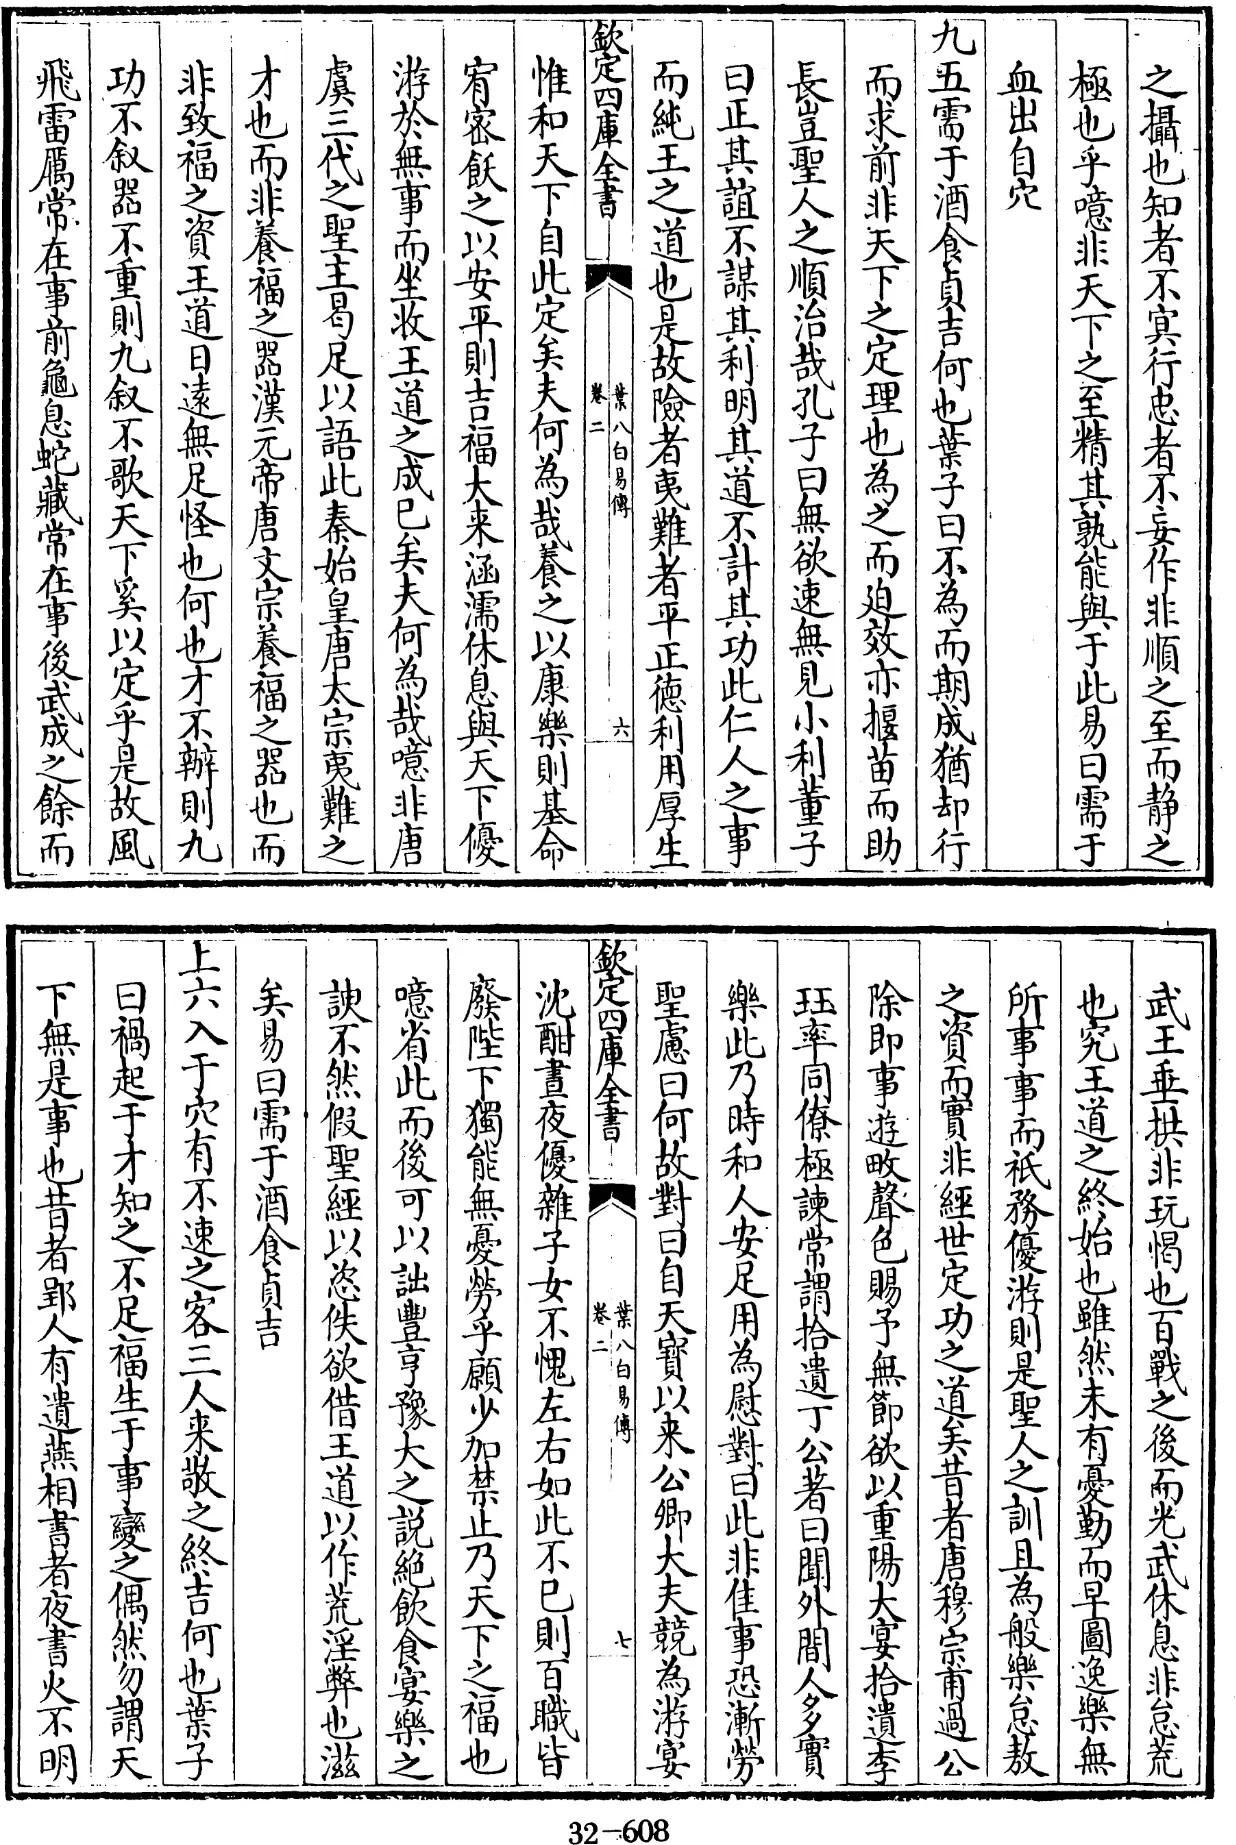 之攝也知者不寘行忠者不妄作非順之至而静之
極也乎噫非天下之至精其孰能與于此易曰需于
血出自穴
九五需于酒食貞吉何也葉子曰不為而期成猶却行
而求前非天下之定理也為之而廹效亦揠苗而助
長豈聖人之順治哉孔子曰無欲速無見小利董子
曰正其誼不謀其利明其道不計其功此仁人之事
而純王之道也是故險者夷難者平正徳利用厚生
欽定四庫全書
葉八白易傳
卷二
六
惟和天下自此定矣夫何為哉養之以康樂則基命
宥宻飫之以安平則吉福大来涵濡休息與天下優
游於無事而坐收王道之成已矣夫何為哉噫非唐
虞三代之聖主曷足以語此秦始皇唐太宗夷難之
才也而非養福之器漢元帝唐文宗養福之器也而
非致福之資王道日遠無足怪也何也才不辦則九
功不叙器不重則九叙不歌天下奚以定乎是故風
飛雷厲常在事前龜息蛇藏常在事後武成之餘而
武王垂拱非玩愒也百戰之後而光武休息非怠荒
也究王道之終始也雖然未有憂勤而早圖逸樂無
所事事而祇務優游則是聖人之訓且為般樂怠敖
之資而實非經世定功之道矣昔者唐穆宗甫過公
除即事遊畋聲色賜予無節欲以重陽大宴拾遺李
珏率同僚極諫常謂拾遺丁公著曰聞外間人多賓
樂此乃時和人安足用為慰對曰此非佳事恐漸勞
聖慮曰何故對曰自天寳以来公卿大夫競為游宴
欽定四庫全書
葉八白易傳
卷二
七
沈酣晝夜優雜子女不愧左右如此不已則百職皆
廢陛下獨能無憂勞乎願少加禁止乃天下之福也
噫省此而後可以詘豐亨豫大之説絶飲食宴樂之
諛不然假聖經以恣佚欲借王道以作荒淫弊也滋
矣易曰需于酒食貞吉
上六入于穴有不速之客三人来敬之終吉何也葉子
曰禍起于才知之不足福生于事變之偶然勿謂天
下無是事也昔者郢人有遺燕相書者夜書火不明
32-608